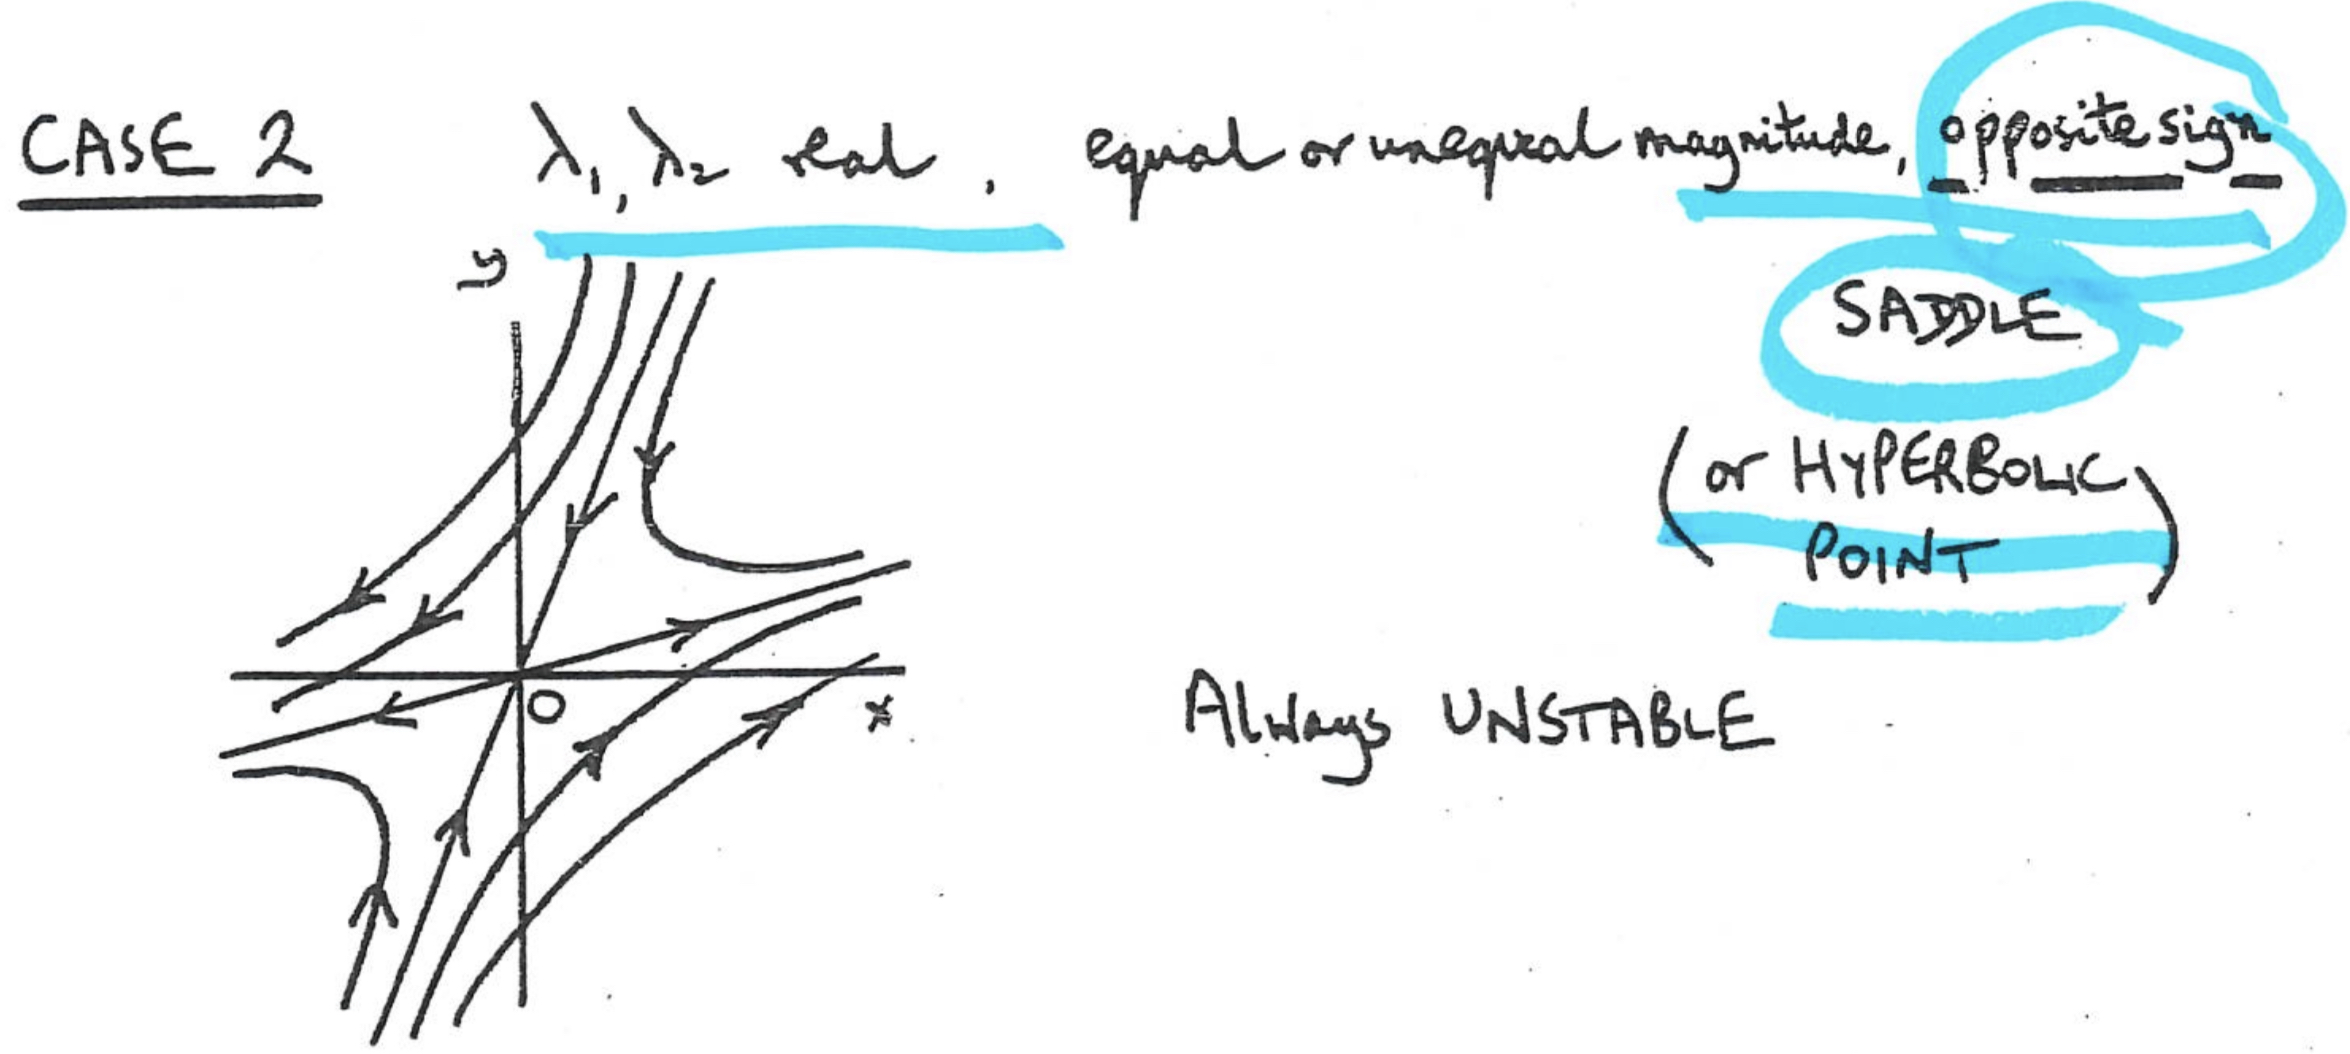 CASE 2 λ₁, λ₂ real, equal or unequal magnitude, opposite sign
y
SADDLE
(or HYPERBOLIC
POINT)
O
x
Always UNSTABLE